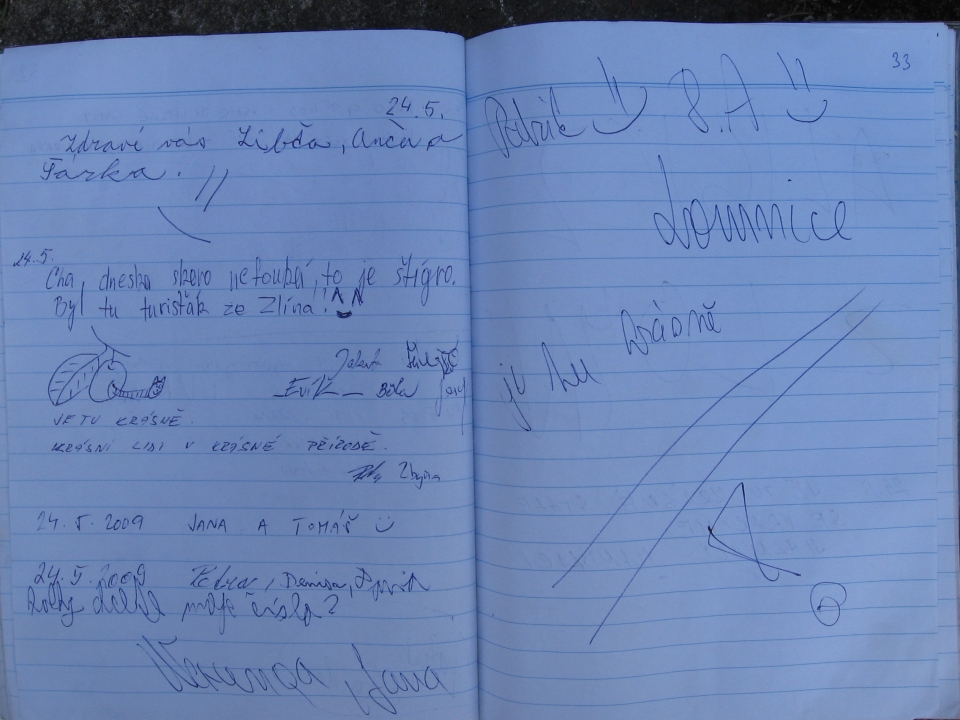 24.5.
Zdraví vás Libča, Anča a
Terka.
24.5.
Cha, dneska skoro nefouká, to je štígro.
Byl tu turisťák ze Zlína!
Jakub
Evik Běla
JE TU KRÁSNĚ.
KRÁSNÍ LIDI V KRÁSNÉ PŘÍRODĚ.
Zbyňa
24.5.2009 JANA A TOMÁŠ
24.5.2009 Petra, Denisa, David
moje čísla?
Jana
33
Patrik 8.A
Lomnice
je tu krásně